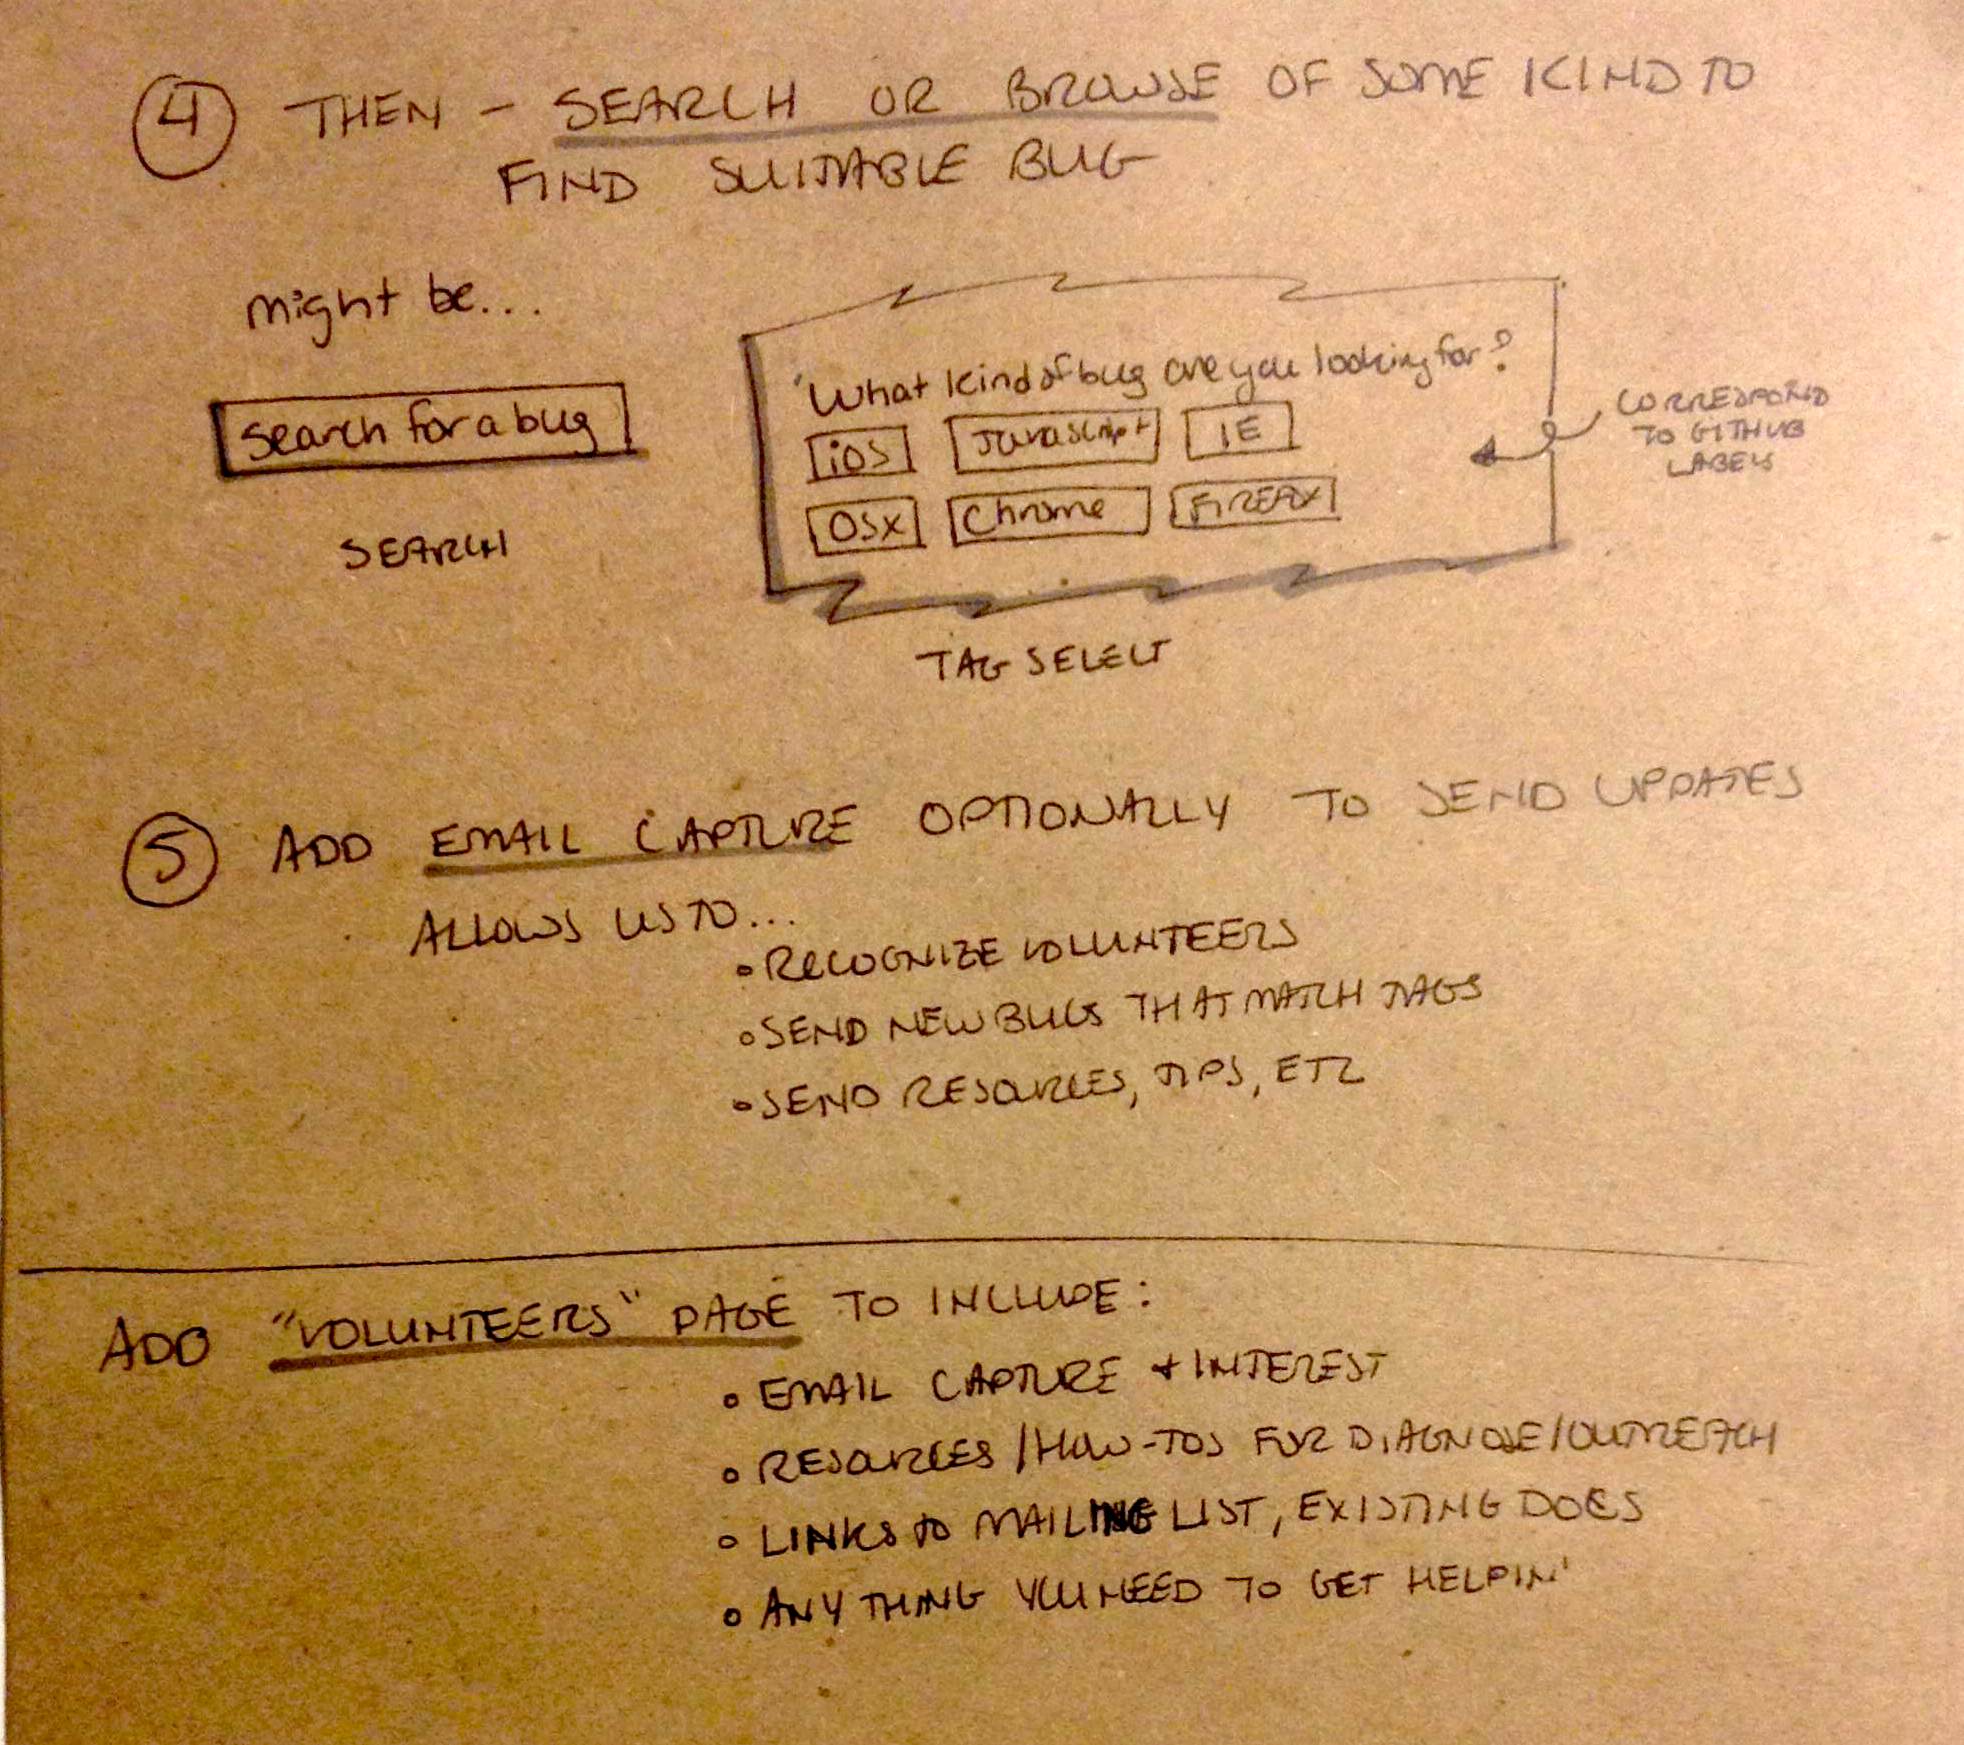 4 THEN – SEARCH OR BROWSE OF SOME KIND TO
FIND SUITABLE BUG
might be...
search for a bug
SEARCH
What kind of bug are you looking for?
iOS Javascript IE
OSX Chrome FIREFOX
CORRESPOND
TO GITHUB
LABELS
TAG SELECT
5 ADD EMAIL CAPTURE OPTIONALLY TO SEND UPDATES
ALLOWS US TO...
• RECOGNIZE VOLUNTEERS
• SEND NEW BUGS THAT MATCH TAGS
• SEND RESOURCES, TIPS, ETC
ADD "VOLUNTEERS" PAGE TO INCLUDE:
• EMAIL CAPTURE + INTEREST
• RESOURCES / HOW-TOS FOR DIAGNOSE/OUTREACH
• LINKS to MAILING LIST, EXISTING DOCS
• ANYTHING YOU NEED TO GET HELPIN'